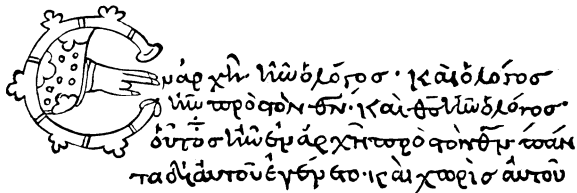 Ἐν ἀρχῆ ἦν ὁ λόγος · καὶ ὁ λόγος
ἦν πρὸς τὸν θ̅ν̅ · καὶ θ̅ς̅ ἦν ὁ λόγος ·
οὗτος ἦν ἐν ἀρχῆ πρὸς τὸν θ̅ν̅ πάν
τα δι αὐτοῦ ἐγένετο · καὶ χωρὶς αὐτοῦ